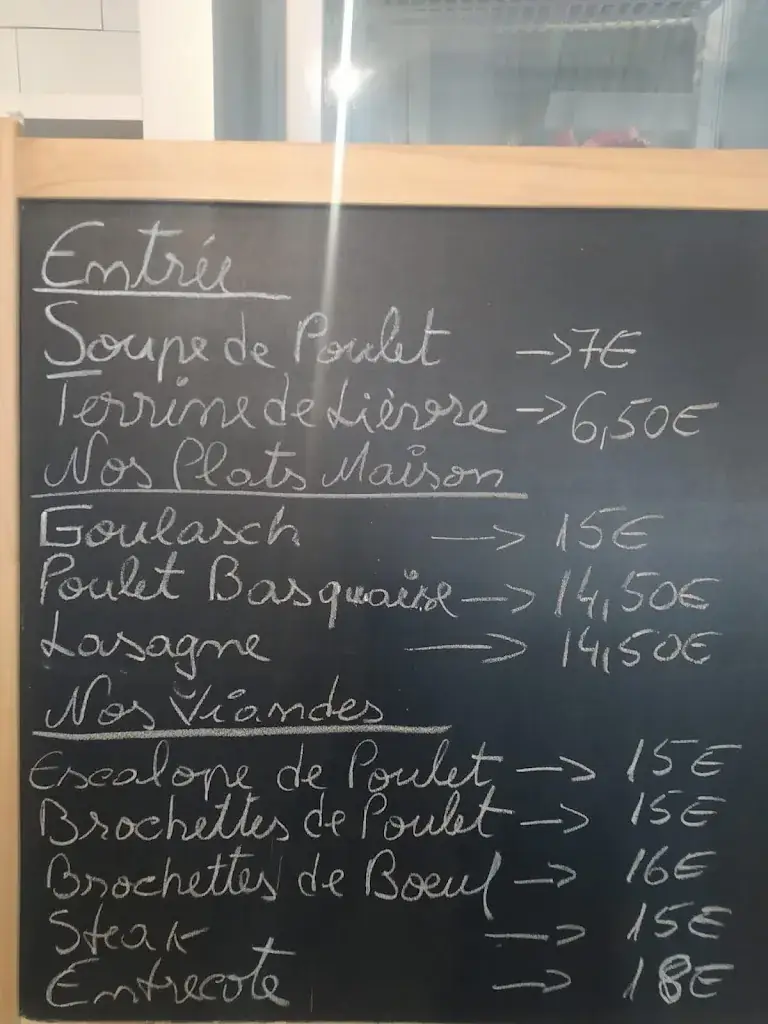 Entrée
Soupe de Poulet → 7€
Terrine de Lièvre → 6,50€
Nos Plats Maison
Goulasch → 15€
Poulet Basquaise → 14,50€
Lasagne → 14,50€
Nos Viandes
Escalope de Poulet → 15€
Brochettes de Poulet → 15€
Brochettes de Boeuf → 16€
Steak → 15€
Entrecote → 18€